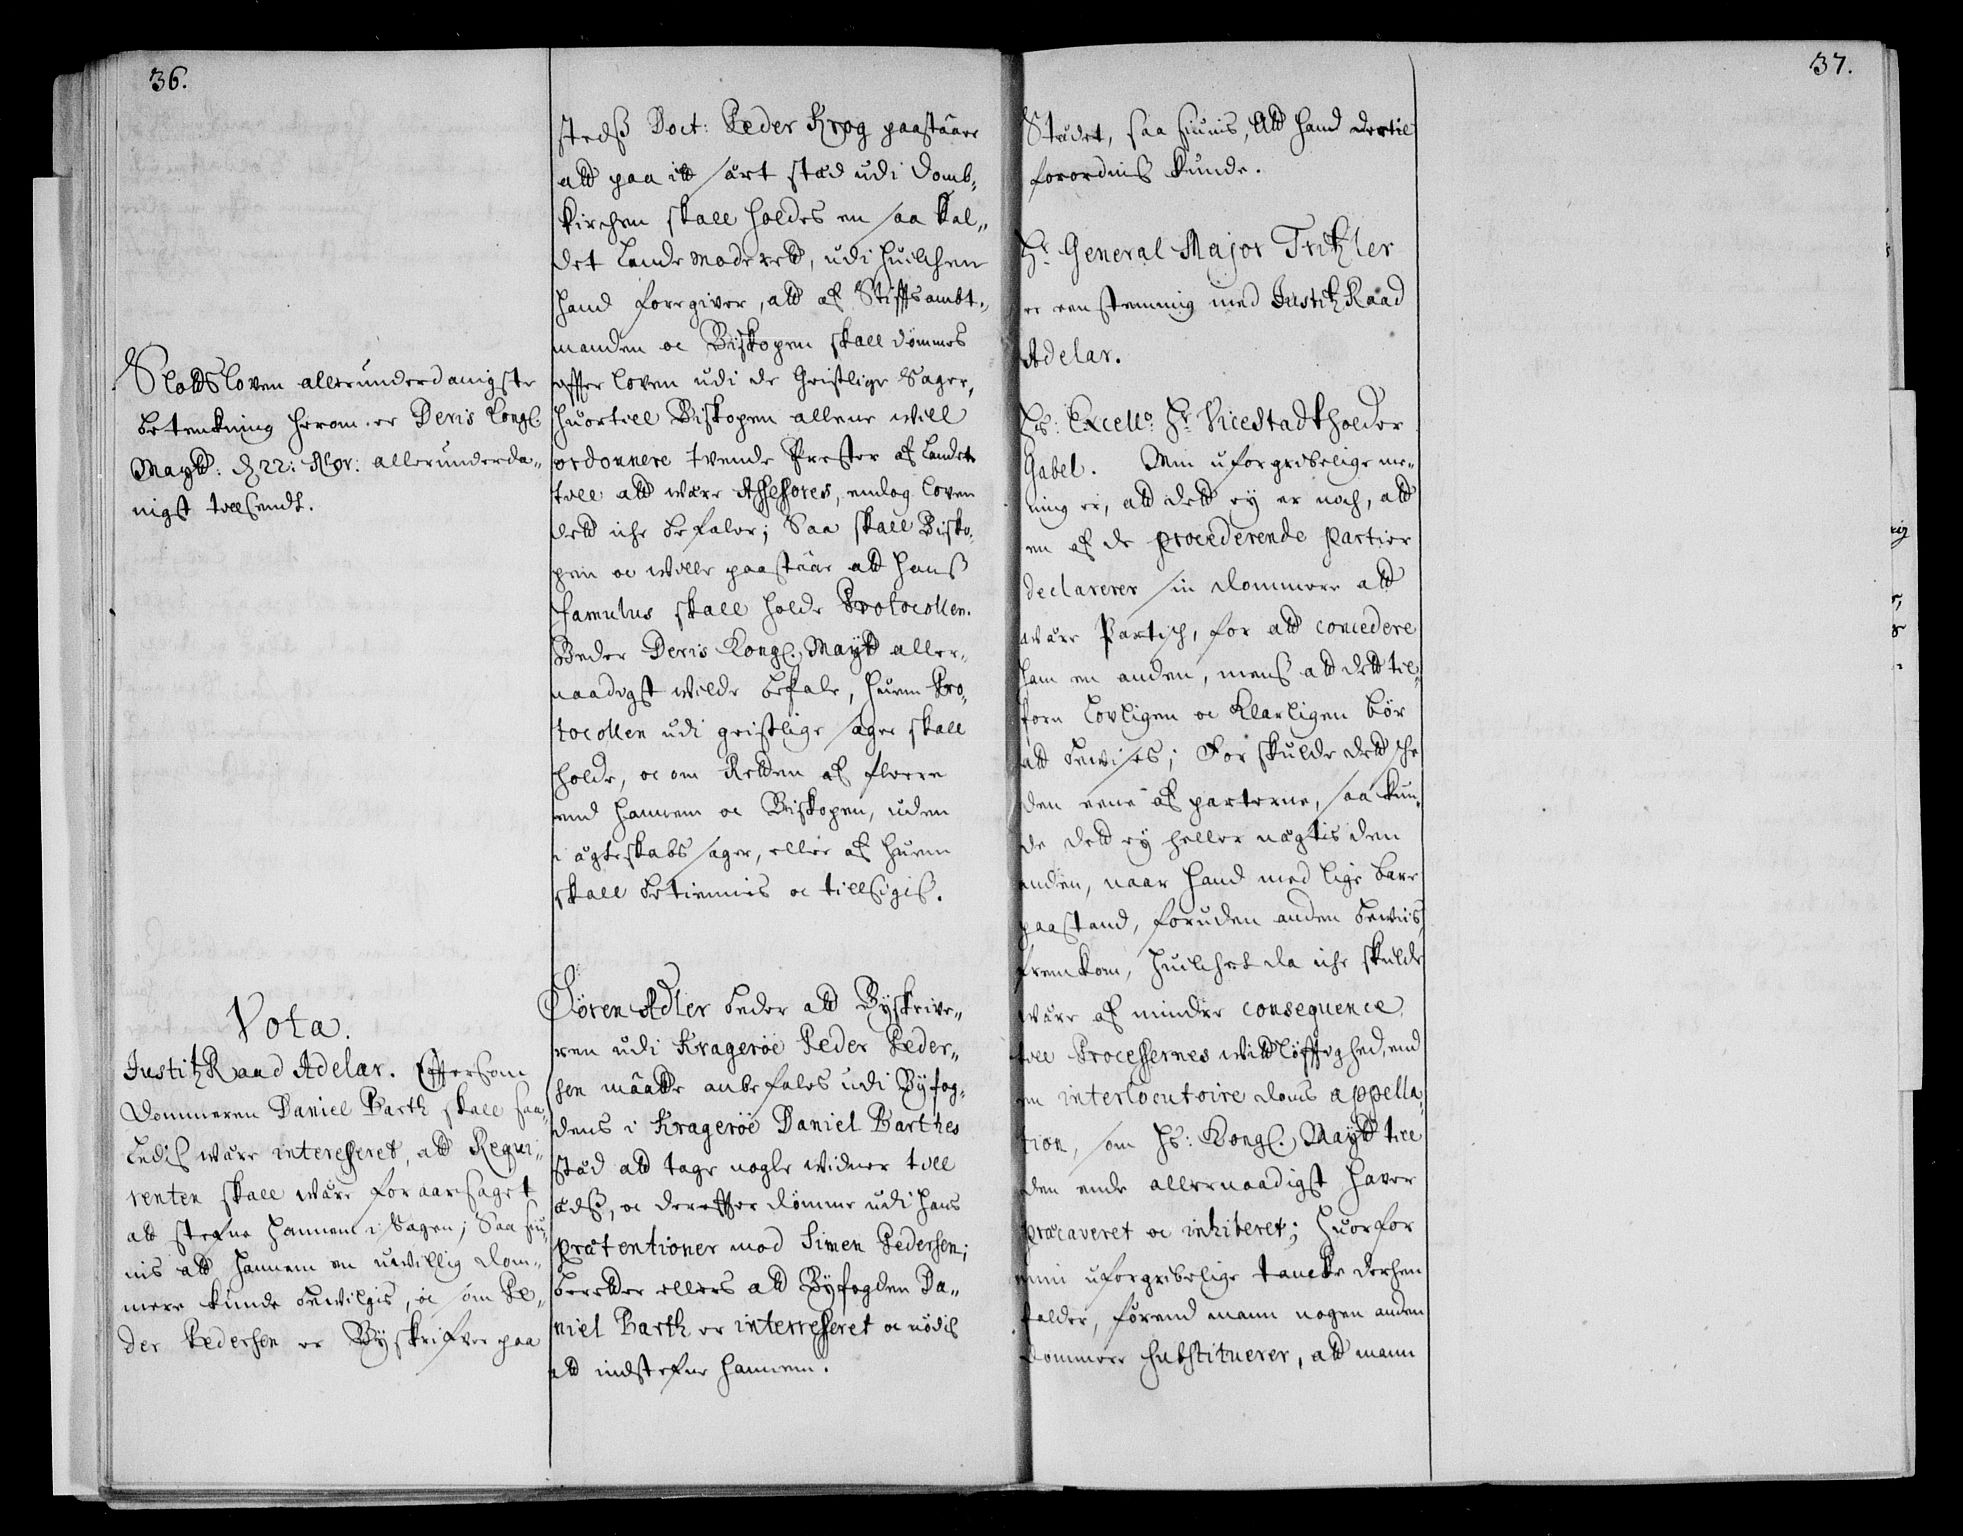 36.
Slottsloven allerunderdanigste
betenkning herom er Deris Kongl:
Maytt: d 22: Nov: allerunderda-
nigst tillsendt.
Vota.
Justitz Raad Adelar. Effter som
Dommeren Daniel Barth skall saa-
ledis være interesseret, att Requi-
renten skall være foraarsaget
att stefne hannem i Sagen; Saa siu-
nis att hannem en uvillig Dom-
mere kunde bevilgis, oc som Pe-
der Pedersen er Byskrifver paa
stedß Doct: Peder Krog paastaar
att paa itt sært stæd udi Domb-
kirchen skall holdes en saa kal-
det Landemode rett, udi huilchen
hand foregiver, att af Stiffts ambt-
manden oc Biskopen skall dømmes
effter loven udi de Geistlige Sager,
huortill Biskopen allene will
ordonnere tvende Prester af Landet
till att være Assessores, endog loven
dett iche befaler; Saa skall Bisko-
pen oc wille paastaae att hanß
famulus skall holde Protocollen.
Beder Deris Kongl: Maytt aller-
naadigst wilde befale, huem Pro-
tocollen udi geistlige sager skall
holde, oc om Retten af fleere
end hannem oc Biskopen, uden
i ægteskabs sager, eller af huem
skall betiennis oc tillsigis.
Søren Adler beder att Byskrive-
ren udi Kragerøe Peder Peder-
sen maatte anbefales udi Byfog-
dens i Kragerøe Daniel Barthes
stæd att tage nogle widner till
ædß, oc dereffter dømme udi hans
prætentioner mod Simen Pedersen;
beretter ellers att Byfogden Da-
niel Barth er interresseret oc nødis
att indstefne hannem.
37.
Stædet, saa siunis, Att hand dertil
forordnis kunde.
Hr. General Major Tritzler
er eenstemmig med Justitz Raad
Adelar.
Hs: Excell: Hr. Vice Stadtholder
Gabel. Min uforgribelige me-
ning er, att dett ey er noch, att
en af de procederende Partier
declarerer sin dommere att
være Partisch, for att concedere
ham en anden, mens att dett til-
forn lovligen oc klarligen bør
att bevises; For skulde dett sche
den eene af parterne, saa kun-
de dett ey heller nægtis den
anden, naar hand med lige bare
paastand, foruden anden beviis,
fremkom, huilchet da iche skulde
være af mindre consequence
till Processernes widtløfftighed, end
en interlocutoire doms appella-
tion, som Hs: Kongl: Maytt till
den ende allernaadigst haver
præcaveret oc inhiberet; huorfor
min uforgribelige tancke derhen
falder, førend mann nogen anden
dommere substituerer, att mann